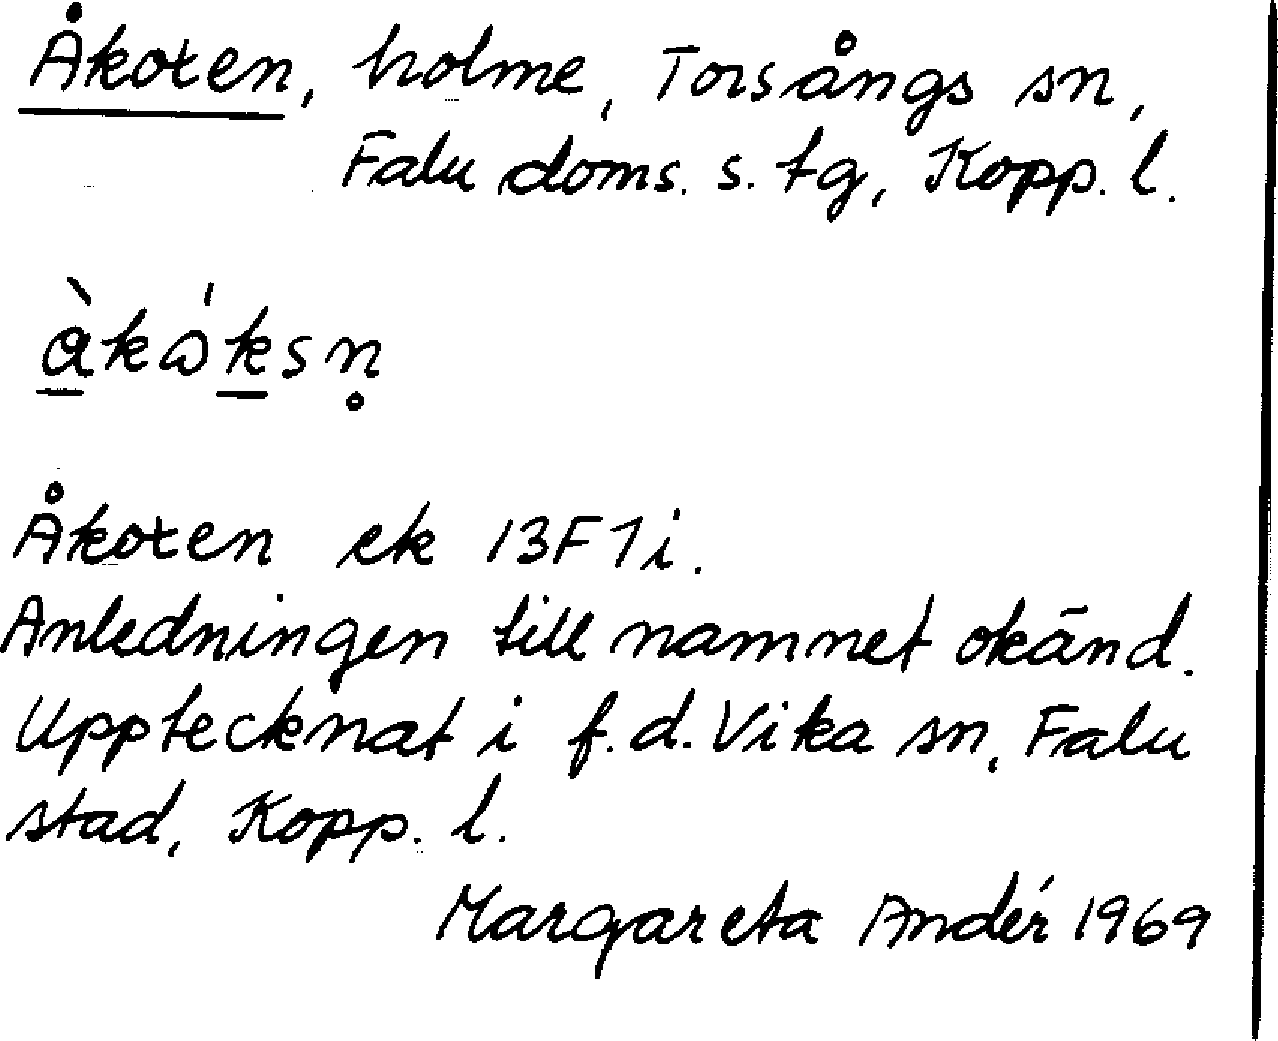 Åkoxen, holme, Torsångs sn,
Falu doms. s. tg, Kopp. l.
Åkoxen ek 13F7i.
Anledningen till namnet okänd.
Upptecknat i f.d. Vika sn, Falu
stad, Kopp. l.
Margareta Andér 1969